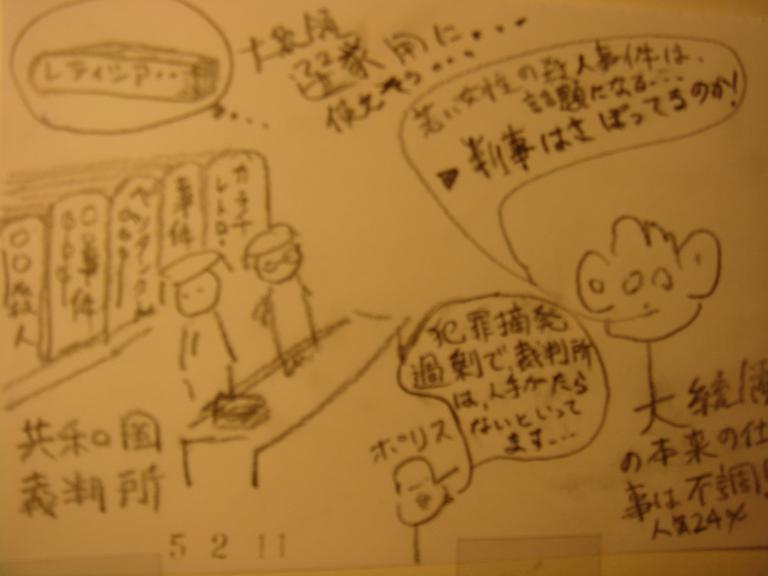 レティシア・・
選挙用に・・・
使えそう・・・
若い女性の殺人事件は、
話題になる・・・
判事はさぼってるのか!
カラチ
事件
〇〇事件
〇〇殺人
犯罪摘発
過剰で、裁判所
は、人手がたら
ないといって
ます・・・
ポリス
共和国
裁判所
大統領
の本来の仕
事は不調!
人気24%
5 2 11